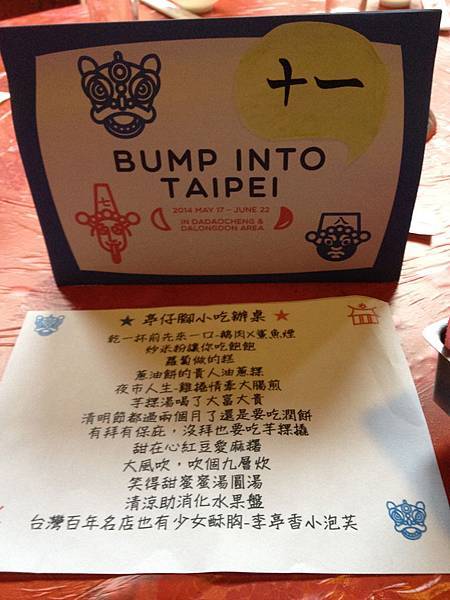 十一
BUMP INTO
TAIPEI
2014 MAY 17 - JUNE 22
IN DADAOCHENG &
DALONGDON AREA
七
八
★ 亭仔腳小吃辦桌 ★
乾一杯前先來一口-鵝肉X鯊魚煙
炒米粉讓你吃飽飽
蘿蔔做的糕
蔥油餅的貴人油蔥粿
夜市人生-雞捲情牽大腸煎
芋粿湯喝了大富大貴
清明節都過兩個月了還是要吃潤餅
有拜有保庇，沒拜也要吃芋粿撬
甜在心紅豆愛麻糬
大風吹，吹個九層炊
笑得甜蜜蜜湯圓湯
清涼助消化水果盤
台灣百年名店也有少女酥胸-李亭香小泡芙